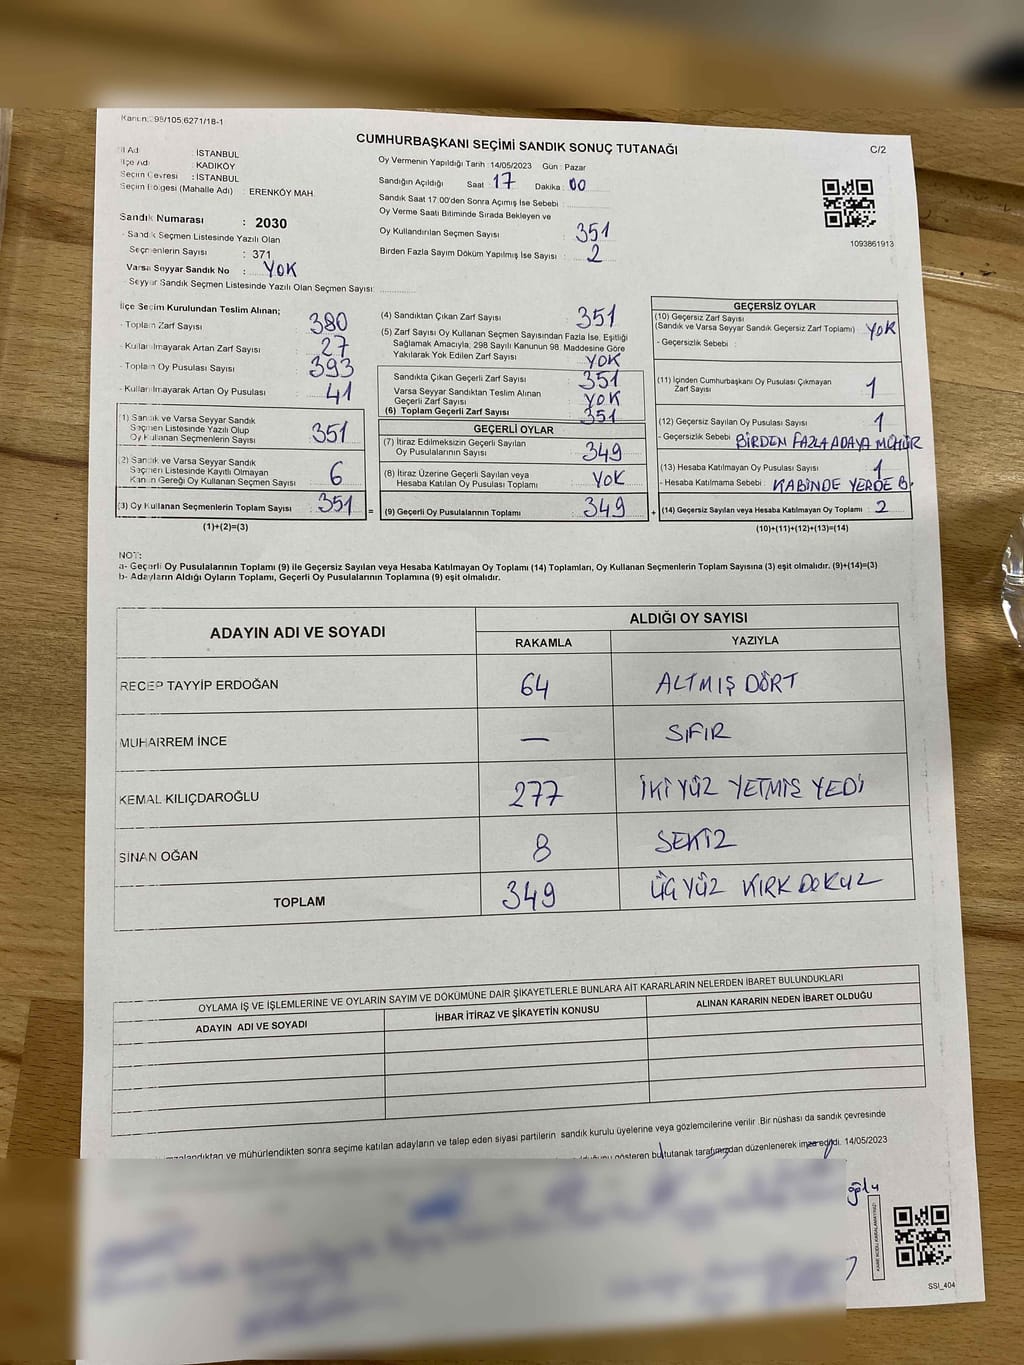 Kanun: 98/105,6271/18-1
CUMHURBAŞKANI SEÇİMİ SANDIK SONUÇ TUTANAĞI
C/2
İl Adı : İSTANBUL
İlçe Adı : KADIKÖY
Seçim Çevresi : İSTANBUL
Seçim Bölgesi (Mahalle Adı) : ERENKÖY MAH.
Sandık Numarası : 2030
- Sandık Seçmen Listesinde Yazılı Olan
Seçmenlerin Sayısı : 371
Varsa Seyyar Sandık No : YOK
- Seyyar Sandık Seçmen Listesinde Yazılı Olan Seçmen Sayısı:
Oy Vermenin Yapıldığı Tarih : 14/05/2023 Gün : Pazar
Sandığın Açıldığı Saat : 17 Dakika : 00
Sandık Saat 17.00'den Sonra Açımış İse Sebebi :
Oy Verme Saati Bitiminde Sırada Bekleyen ve
Oy Kullandırılan Seçmen Sayısı : 351
Birden Fazla Sayım Döküm Yapılmış İse Sayısı : 2
1093861913
İlçe Seçim Kurulundan Teslim Alınan;
- Toplam Zarf Sayısı 380
- Kullanılmayarak Artan Zarf Sayısı 27
- Toplam Oy Pusulası Sayısı 393
- Kullanılmayarak Artan Oy Pusulası 41
(1) Sandık ve Varsa Seyyar Sandık
Seçmen Listesinde Yazılı Olup
Oy Kullanan Seçmenlerin Sayısı 351
(2) Sandık ve Varsa Seyyar Sandık
Seçmen Listesinde Kayıtlı Olmayan
Kanun Gereği Oy Kullanan Seçmen Sayısı 6
(3) Oy Kullanan Seçmenlerin Toplam Sayısı 351 =
(1)+(2)=(3)
(4) Sandıktan Çıkan Zarf Sayısı 351
(5) Zarf Sayısı Oy Kullanan Seçmen Sayısından Fazla İse, Eşitliği
Sağlamak Amacıyla, 298 Sayılı Kanunun 98. Maddesine Göre
Yakılarak Yok Edilen Zarf Sayısı YOK
Sandıkta Çıkan Geçerli Zarf Sayısı : 351
Varsa Seyyar Sandıktan Teslim Alınan
Geçerli Zarf Sayısı : YOK
(6) Toplam Geçerli Zarf Sayısı : 351
GEÇERLİ OYLAR
(7) İtiraz Edilmeksizin Geçerli Sayılan
Oy Pusulalarının Sayısı 349
(8) İtiraz Üzerine Geçerli Sayılan veya
Hesaba Katılan Oy Pusulası Toplamı YOK
(9) Geçerli Oy Pusulalarının Toplamı 349 +
GEÇERSİZ OYLAR
(10) Geçersiz Zarf Sayısı
(Sandık ve Varsa Seyyar Sandık Geçersiz Zarf Toplamı) YOK
- Geçersizlik Sebebi :
(11) İçinden Cumhurbaşkanı Oy Pusulası Çıkmayan
Zarf Sayısı 1
(12) Geçersiz Sayılan Oy Pusulası Sayısı 1
- Geçersizlik Sebebi : BİRDEN FAZLA ADAYA MÜHÜR
(13) Hesaba Katılmayan Oy Pusulası Sayısı 1
- Hesaba Katılmama Sebebi : KABİNDE YERDE B.
(14) Geçersiz Sayılan veya Hesaba Katılmayan Oy Toplamı : 2
(10)+(11)+(12)+(13)=(14)
NOT:
a- Geçerli Oy Pusulalarının Toplamı (9) ile Geçersiz Sayılan veya Hesaba Katılmayan Oy Toplamı (14) Toplamları, Oy Kullanan Seçmenlerin Toplam Sayısına (3) eşit olmalıdır. (9)+(14)=(3)
b- Adayların Aldığı Oyların Toplamı, Geçerli Oy Pusulalarının Toplamına (9) eşit olmalıdır.
ADAYIN ADI VE SOYADI ALDIĞI OY SAYISI
RAKAMLA YAZIYLA
RECEP TAYYİP ERDOĞAN 64 ALTMIŞ DÖRT
MUHARREM İNCE — SIFIR
KEMAL KILIÇDAROĞLU 277 İKİ YÜZ YETMİŞ YEDİ
SİNAN OĞAN 8 SEKİZ
TOPLAM 349 ÜÇ YÜZ KIRK DOKUZ
OYLAMA İŞ VE İŞLEMLERİNE VE OYLARIN SAYIM VE DÖKÜMÜNE DAİR ŞİKAYETLERLE BUNLARA AİT KARARLARIN NELERDEN İBARET BULUNDUKLARI
ADAYIN ADI VE SOYADI İHBAR İTİRAZ VE ŞİKAYETİN KONUSU ALINAN KARARIN NEDEN İBARET OLDUĞU
ve mühürlendikten sonra seçime katılan adayların ve talep eden siyasi partilerin sandık kurulu üyelerine veya gözlemcilerine verilir .Bir nüshası da sandık çevresinde
gösteren bu tutanak tarafımızdan düzenlenerek imza edildi. 14/05/2023
oğlu
SSI_404